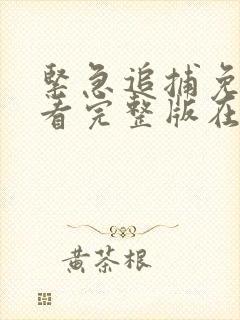 緊急追捕免
看完整版在
黄茶根